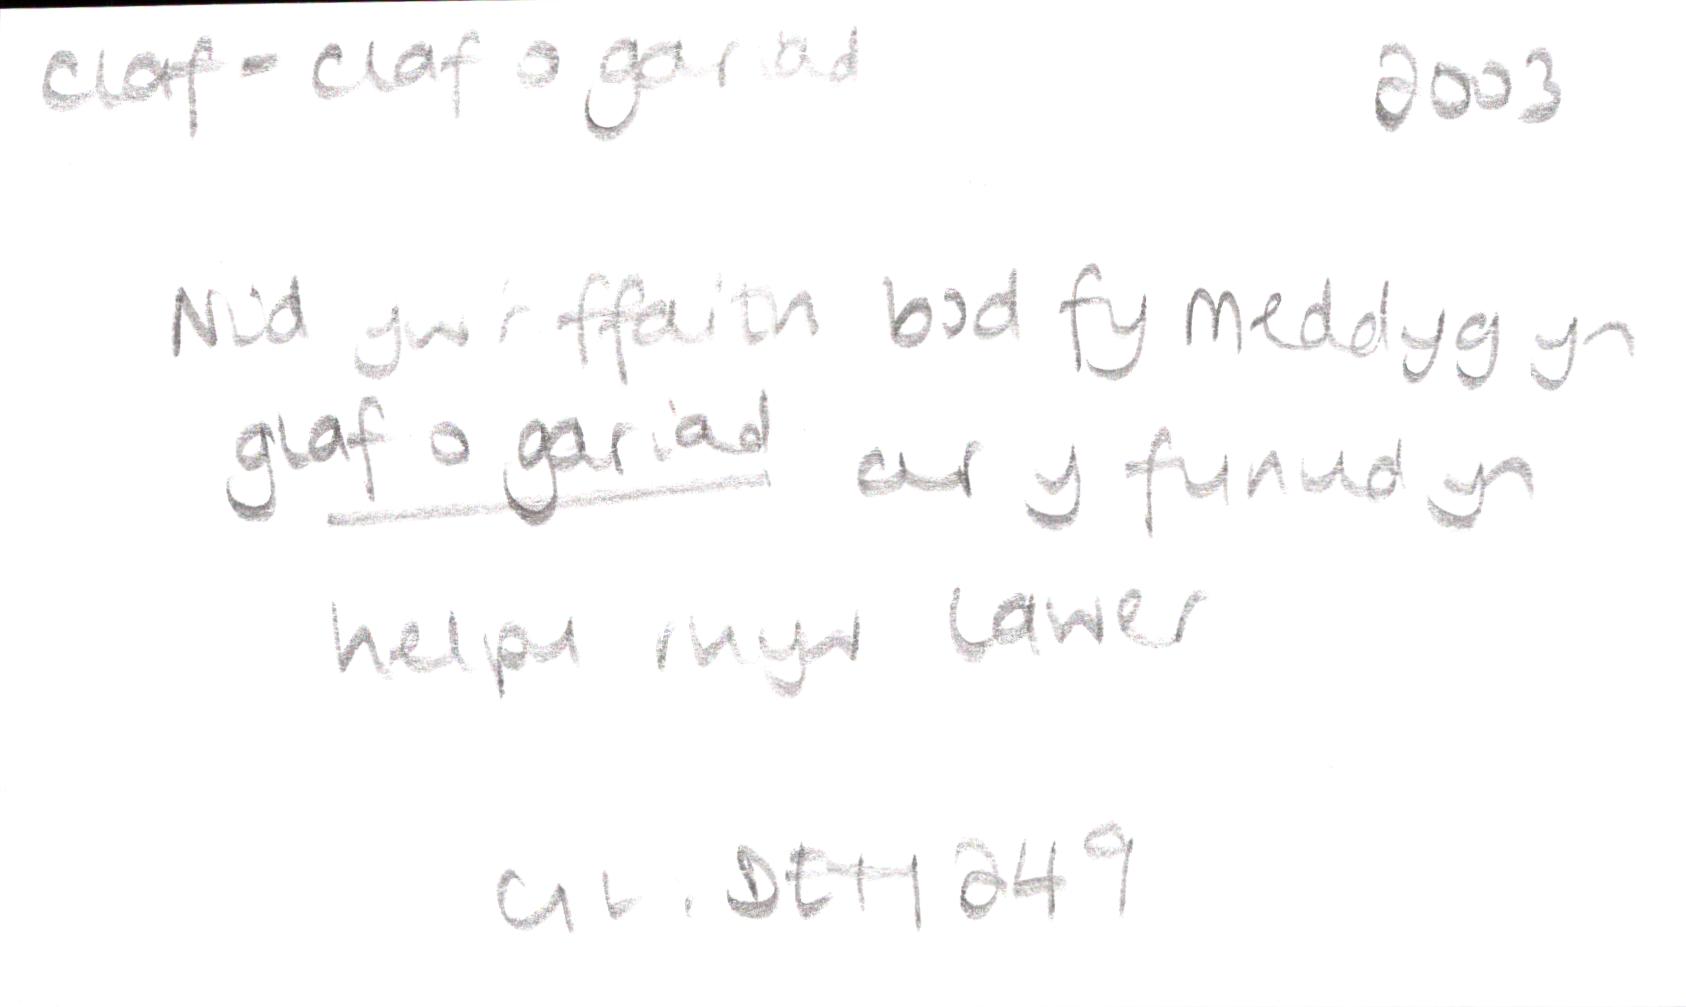 claf - claf o gariad 2003
Nid yw'r ffaith bod fy meddyg yn
glaf o gariad ar y funud yn
helpu rhyw lawer
GL. DETH 249